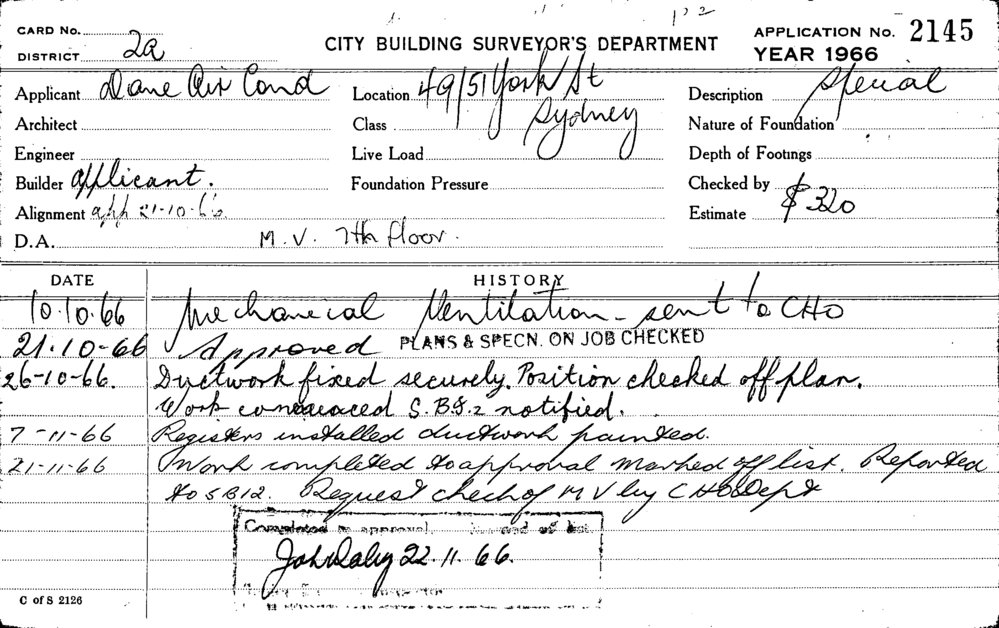 CARD No.
DISTRICT 2a
CITY BUILDING SURVEYOR'S DEPARTMENT
APPLICATION No. 2145
YEAR 1966
Applicant Dane Air Cond
Location 49/51 York St
Sydney
Description Special
Architect
Class
Nature of Foundation
Engineer
Live Load
Depth of Footings
Builder applicant.
Foundation Pressure
Checked by
Alignment app 21-10-66
Estimate $320
D.A. M.V. 7th floor.
DATE HISTORY
10.10.66 Mechanical Ventilation - sent to CHO
21.10-66 Approved PLANS & SPECN. ON JOB CHECKED
26-10-66. Ductwork fixed securely. Position checked off plan.
Work commenced S.B.I.2 notified.
7-11-66 Registers installed ductwork painted.
21-11-66 Work completed to approval marked off list. Reported
to SBI2. Request check of MV by CHO Dept
Completed to approval, off list.
John Daley 22.11.66.
C of S 2126